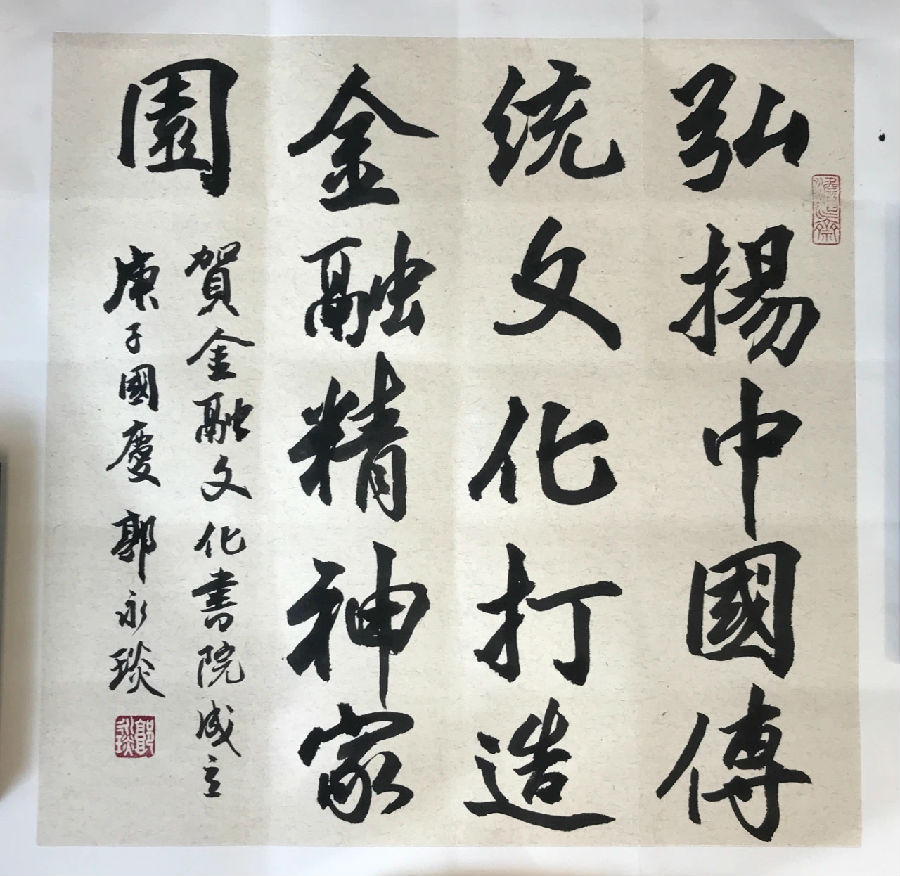 弘揚中國傳
統文化打造
金融精神家
園
賀金融文化書院成立
庚子國慶 郭永琰